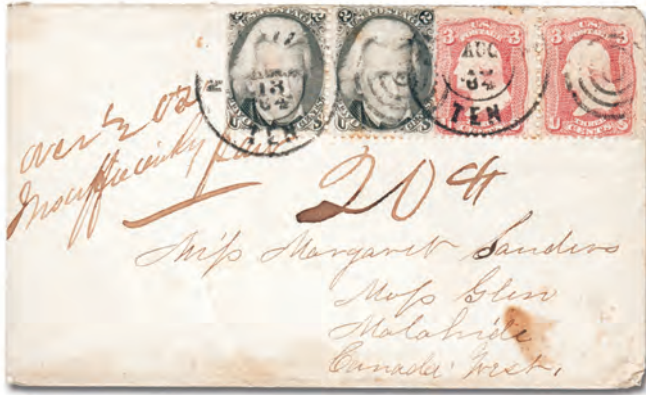 U.S. POSTAGE
2 2
U 3 3 S
TWO CENTS
AUG
13
64
TEN
AUG
64
TEN
over ½ oz
Insufficiently paid
20 cts
Miss Margaret Sanders
Moss Glen
Malahide
Canada West.